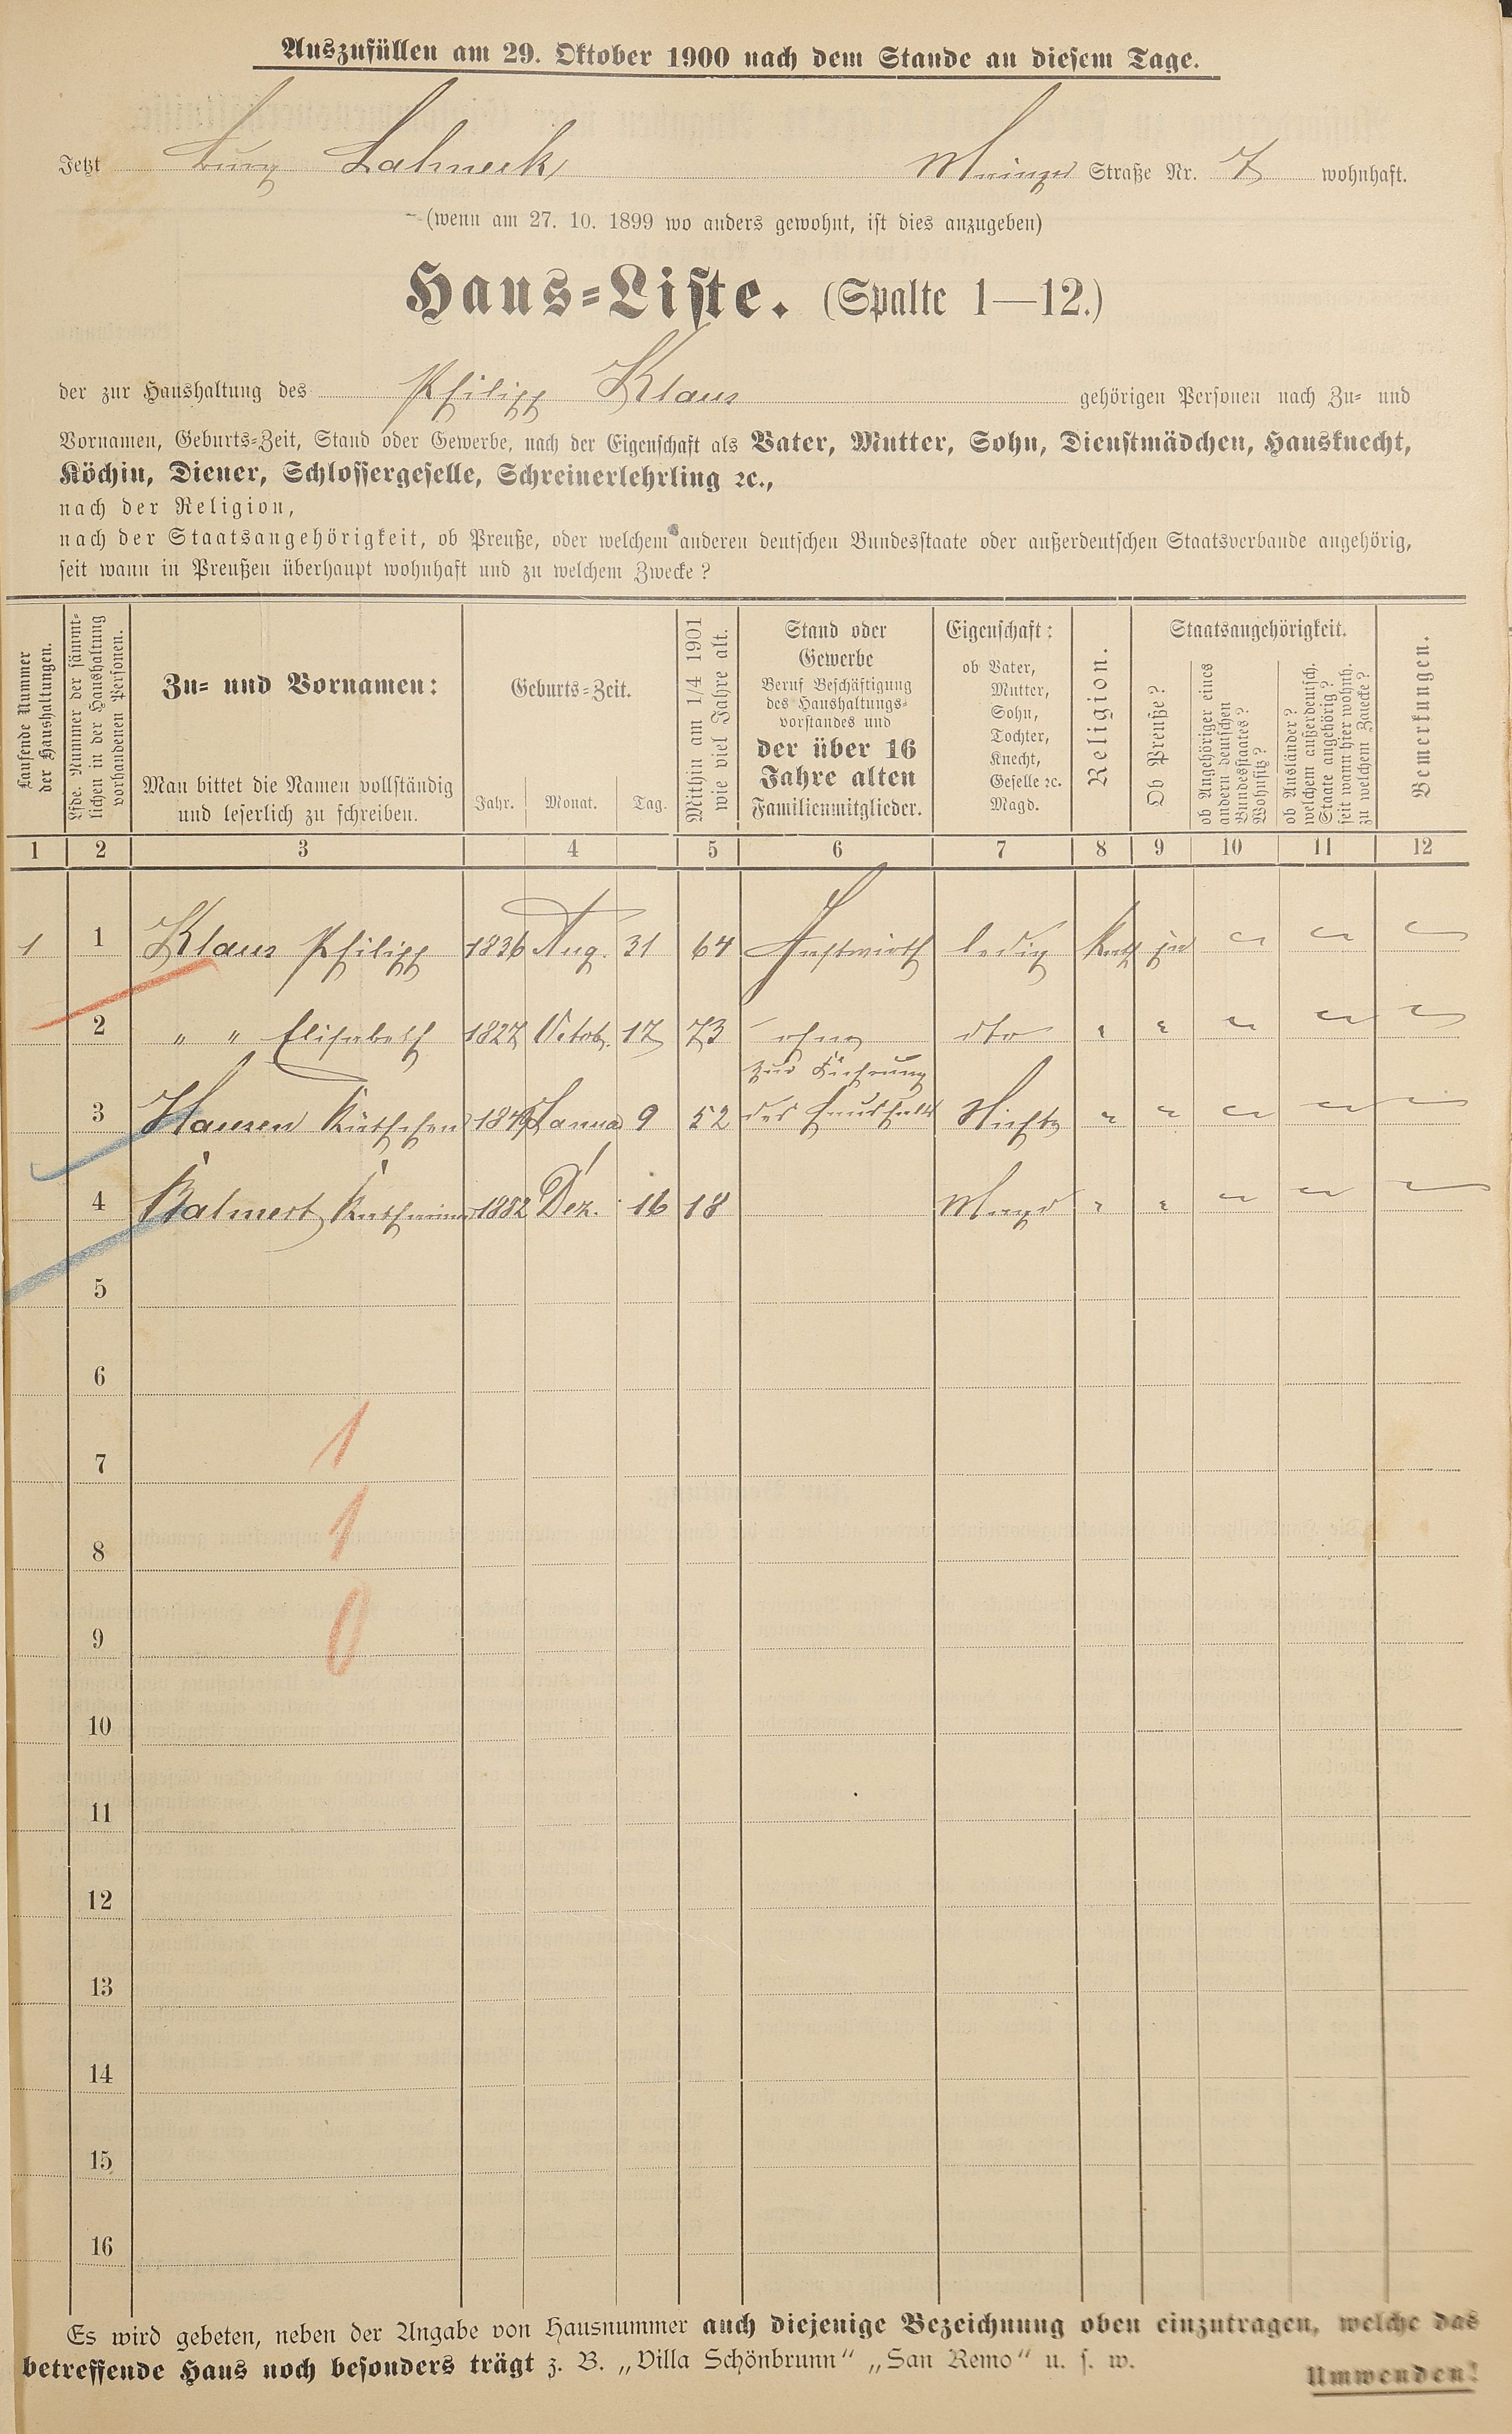 Auszufüllen am 29. Oktober 1900 nach dem Stande an diesem Tage.
Jetzt Burg Lahneck, Mainzer Straße Nr. 7 wohnhaft.
(wenn am 27. 10. 1899 wo anders gewohnt, ist dies anzugeben)
Haus-Liste. (Spalte 1—12.)
der zur Haushaltung des Philipp Klaus gehörigen Personen nach Zu- und
Vornamen, Geburts-Zeit, Stand oder Gewerbe, nach der Eigenschaft als Vater, Mutter, Sohn, Dienstmädchen, Hausknecht,
Köchin, Diener, Schlossergeselle, Schreinerlehrling ꝛc.,
nach der Religion,
nach der Staatsangehörigkeit, ob Preuße, oder welchem anderen deutschen Bundesstaate oder außerdeutschen Staatsverbande angehörig,
seit wann in Preußen überhaupt wohnhaft und zu welchem Zwecke?
Laufende Nummer
der Haushaltungen.
Lfde. Nummer der sämmt-
lichen in der Haushaltung
vorhandenen Personen.
Zu- und Vornamen:
Man bittet die Namen vollständig
und leserlich zu schreiben.
Geburts-Zeit.
Jahr. Monat. Tag.
Mithin am 1/4 1901
wie viel Jahre alt.
Stand oder
Gewerbe
Beruf Beschäftigung
des Haushaltungs-
vorstandes und
der über 16
Jahre alten
Familienmitglieder.
Eigenschaft:
ob Vater,
Mutter,
Sohn,
Tochter,
Knecht,
Geselle ꝛc.
Magd.
Religion.
Staatsangehörigkeit.
Ob Preuße?
ob Angehöriger eines
andern deutschen
Bundesstaates?
Wohnsitz?
ob Ausländer?
welchem außerdeutsch.
Staate angehörig?
seit wann hier wohnh.
zu welchem Zwecke?
Bemerkungen.
1 2 3 4 5 6 7 8 9 10 11 12
1 1 Klaus Philipp 1836 Aug. 31 64 Gastwirth ledig Kath ja
2 " " Elisabeth 1827 Octob. 17 73 ohne dto " "
zur Führung
3 Hansen Käthchen 1849 Januar 9 52 des Haushalts Nichte " "
4 Balmert Katharina 1882 Dez. 16 18 Magd " "
5
6
7 1
8 1
9 0
10
11
12
13
14
15
16
Es wird gebeten, neben der Angabe von Hausnummer auch diejenige Bezeichnung oben einzutragen, welche das
betreffende Haus noch besonders trägt z. B. „Villa Schönbrunn" „San Remo" u. s. w.
Umwenden!